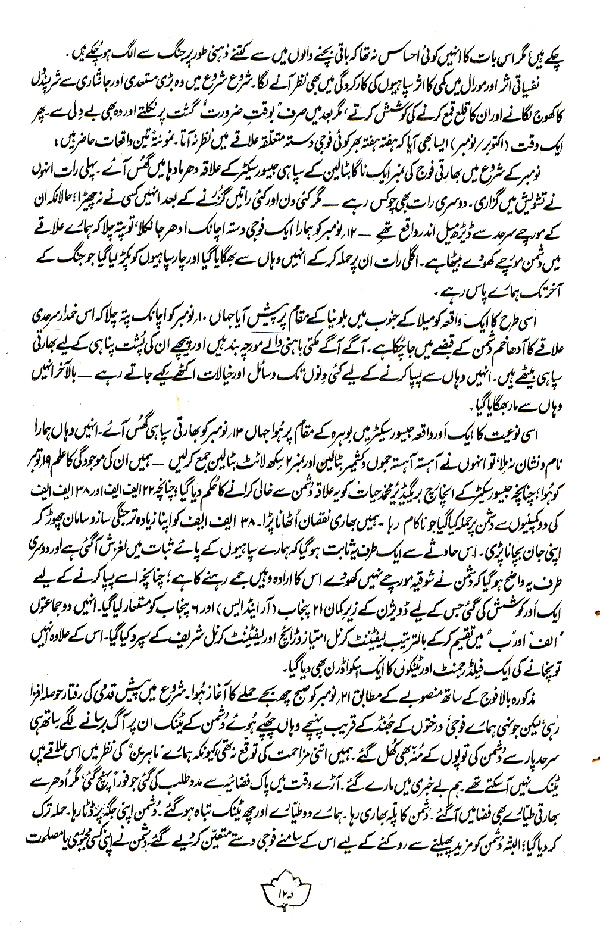 چکے ہیں مگر اس بات کا انہیں کوئی احساس نہ تھا کہ باقی بچنے والوں میں سے کتنے ذہنی طور پر جنگ سے الگ ہو چکے ہیں۔
نفسیاتی اثر اور مورال میں کمی کا اثر سپاہیوں کی کارکردگی میں بھی نظر آنے لگا۔ شروع شروع میں وہ بڑی مستعدی اور جانفشانی سے شرپسندوں
کا کھوج لگانے اور ان کا قلع قمع کرنے کی کوشش کرتے، مگر بعد میں صرف "بوقتِ ضرورت" گشت پر نکلتے اور وہ بھی بے دلی سے۔ پھر
ایک وقت (اکتوبر/نومبر) ایسا بھی آیا کہ ہفتہ ہفتہ بھر کوئی فوجی دستہ متعلقہ علاقے میں نظر نہ آتا۔ نمونۃً تین واقعات حاضر ہیں:
نومبر کے شروع میں بھارتی فوج کی نمبر ایک ناگا بٹالین کے سپاہی جیسور سیکٹر کے علاقہ دھرمادہا میں گھس آئے۔ پہلی رات انہوں
نے تشویش میں گزاری۔ دوسری رات بھی چوکس رہے — مگر کئی دن اور کئی راتیں گزرنے کے بعد انہیں کسی نے نہ چھیڑا؛ حالانکہ ان
کے مورچے سرحد سے ڈیڑھ میل اندر واقع تھے — ۱۲ نومبر کو ہمارا ایک فوجی دستہ اچانک ادھر جا نکلا، تو پتہ چلا کہ ہمارے علاقے
میں دشمن مورچے کھودے بیٹھا ہے۔ اگلی رات ان پر حملہ کر کے انہیں وہاں سے بھگایا گیا اور چار سپاہیوں کو پکڑ لیا گیا جو جنگ کے
آخر تک ہمارے پاس رہے۔
اسی طرح کا ایک واقعہ کومیلا کے جنوب میں بلونیا کے مقام پر پیش آیا جہاں ۱۰ نومبر کو اچانک پتہ چلا کہ اس خمدار سرحدی
علاقے کا آدھا خم دشمن کے قبضے میں جا چکا ہے۔ آگے آگے مکتی باہنی والے مورچہ بند ہیں اور پیچھے ان کی پشت پناہی کے لیے بھارتی
سپاہی بیٹھے ہیں۔ انہیں وہاں سے پسپا کرنے کے لیے کئی دنوں تک وسائل اور خیالات اکٹھے کیے جاتے رہے — بالآخر انہیں
وہاں سے مار بھگایا گیا۔
اسی نوعیت کا ایک اور واقعہ جیسور سیکٹر میں بوئرہ کے مقام پر ہوا جہاں ۱۳ نومبر کو بھارتی سپاہی گھس آئے۔ انہیں وہاں ہمارا
نام و نشان نہ ملا، تو انہوں نے آہستہ آہستہ جموں و کشمیر بٹالین اور نمبر ۲ سکھ لائٹ بٹالین جمع کر لیں — ہمیں ان کی موجودگی کا علم ۱۹ نومبر
کو ہوا؛ چنانچہ جیسور سیکٹر کے انچارج بریگیڈیر محمد حیات کو یہ علاقہ دشمن سے خالی کرانے کا حکم دیا گیا؛ چنانچہ ۲۲ ایف ایف اور ۳۸ ایف ایف
کی دو کمپنیوں سے دشمن پر حملہ کیا گیا جو ناکام رہا۔ ہمیں بھاری نقصان اٹھانا پڑا۔ ۳۸ ایف ایف کو اپنا زیادہ تر جنگی ساز و سامان چھوڑ کر
اپنی جان بچانا پڑی۔ اس حادثے سے ایک طرف یہ ثابت ہو گیا کہ ہمارے سپاہیوں کے پائے ثبات میں لغزش آ گئی ہے اور دوسری
طرف یہ واضح ہو گیا کہ دشمن نے شوقیہ مورچے نہیں کھودے اس کا ارادہ وہیں جمے رہنے کا ہے؛ چنانچہ اسے پسپا کرنے کے لیے
ایک اور کوشش کی گئی جس کے لیے ۹ ڈویژن کے زیر کمان ۲۱ پنجاب (آر اینڈ ایس) اور ۶ پنجاب کو مستعار لیا گیا۔ انہیں دو جماعتوں
"الف" اور "ب" میں تقسیم کر کے بالترتیب لیفٹیننٹ کرنل امتیاز وڑائچ اور لیفٹیننٹ کرنل شریف کے سپرد کیا گیا۔ اس کے علاوہ انہیں
توپخانے کی ایک فیلڈ رجمنٹ اور ٹینکوں کا ایک سکواڈرن بھی دیا گیا۔
مذکورہ بالا فوج کے ساتھ منصوبے کے مطابق ۲۱ نومبر کو صبح چھ بجے حملے کا آغاز ہوا۔ شروع میں پیش قدمی کی رفتار حوصلہ افزا
رہی لیکن جونہی ہمارے فوجی درختوں کے جھنڈ کے قریب پہنچے وہاں چھپے ہوئے دشمن کے ٹینک ان پر آگ برسانے لگے ساتھ ہی
سرحد پار سے دشمن کی توپوں کے منہ بھی کھل گئے۔ ہمیں اتنی مزاحمت کی توقع نہ تھی کیونکہ ہمارے "ماہرین" کی نظر میں اس علاقے میں
ٹینک نہیں آ سکتے تھے۔ ہم بے خبری میں مارے گئے۔ آڑے وقت میں پاک فضائیہ سے مدد طلب کی گئی جو فوراً پہنچ گئی مگر ادھر سے
بھارتی طیارے بھی فضا میں آ گئے۔ دشمن کا پلہ بھاری رہا۔ ہمارے دو طیارے اور چھ ٹینک تباہ ہو گئے۔ دشمن اپنی جگہ پر ڈٹا رہا۔ حملہ ترک
کر دیا گیا؛ البتہ دشمن کو مزید پھیلنے سے روکنے کے لیے اس کے سامنے فوجی دستے متعین کر دیے گئے۔ دشمن نے اپنی کسی مجبوری یا مصلحت
۱۲۵